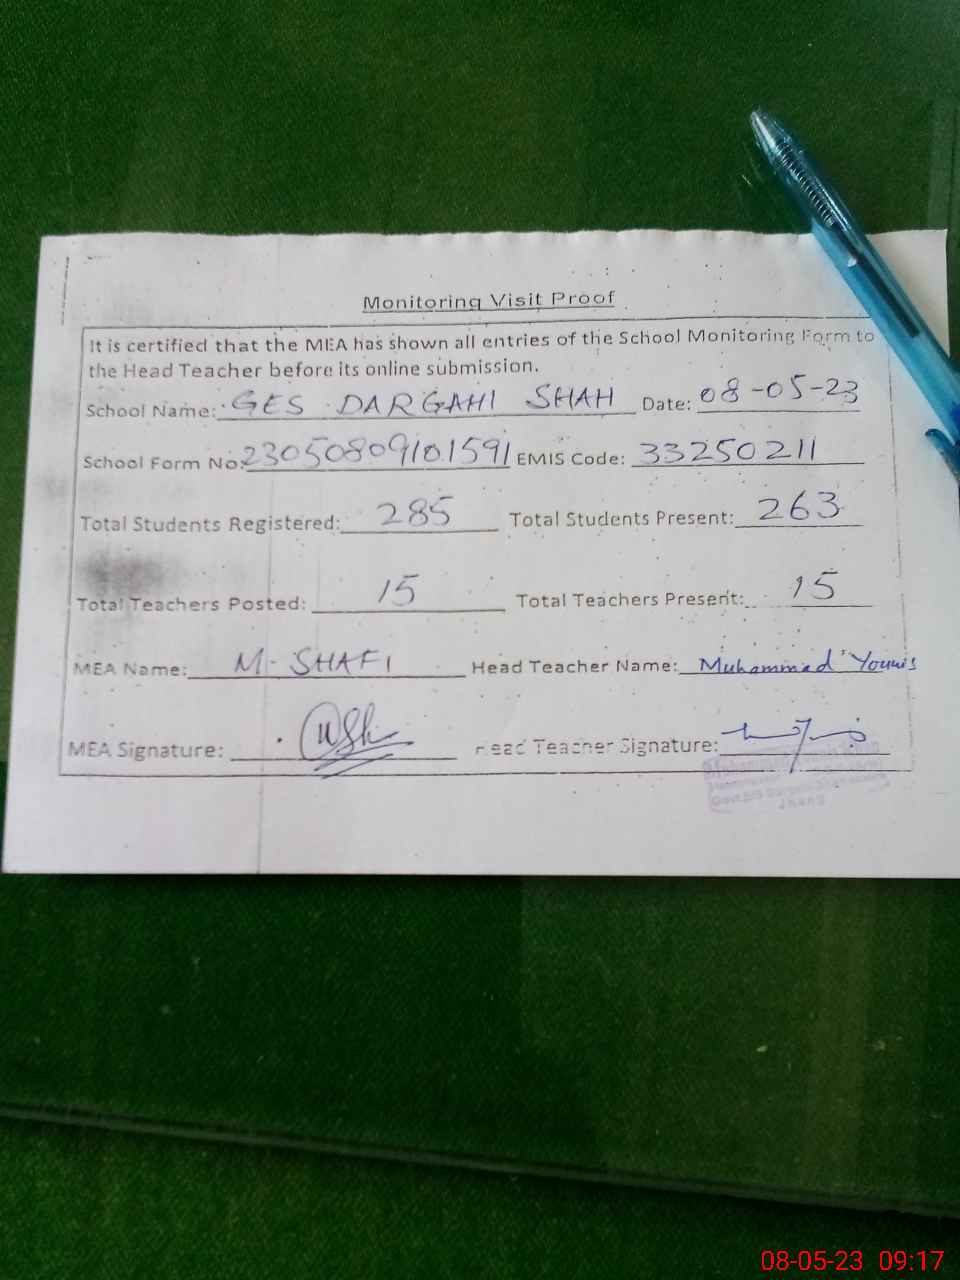 Monitoring Visit Proof
It is certified that the MEA has shown all entries of the School Monitoring Form to
the Head Teacher before its online submission.
School Name: GES DARGAHI SHAH Date: 08-05-23
School Form No: 23050809101591 EMIS Code: 33250211
Total Students Registered: 285 Total Students Present: 263
Total Teachers Posted: 15 Total Teachers Present: 15
MEA Name: M. SHAFI Head Teacher Name: Muhammad Younis
MEA Signature: Head Teacher Signature:
Muhammad
Jhang
08-05-23 09:17